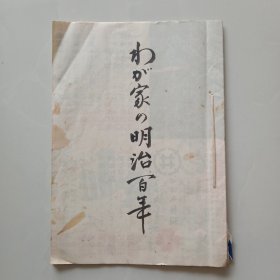 わが家の明治百年